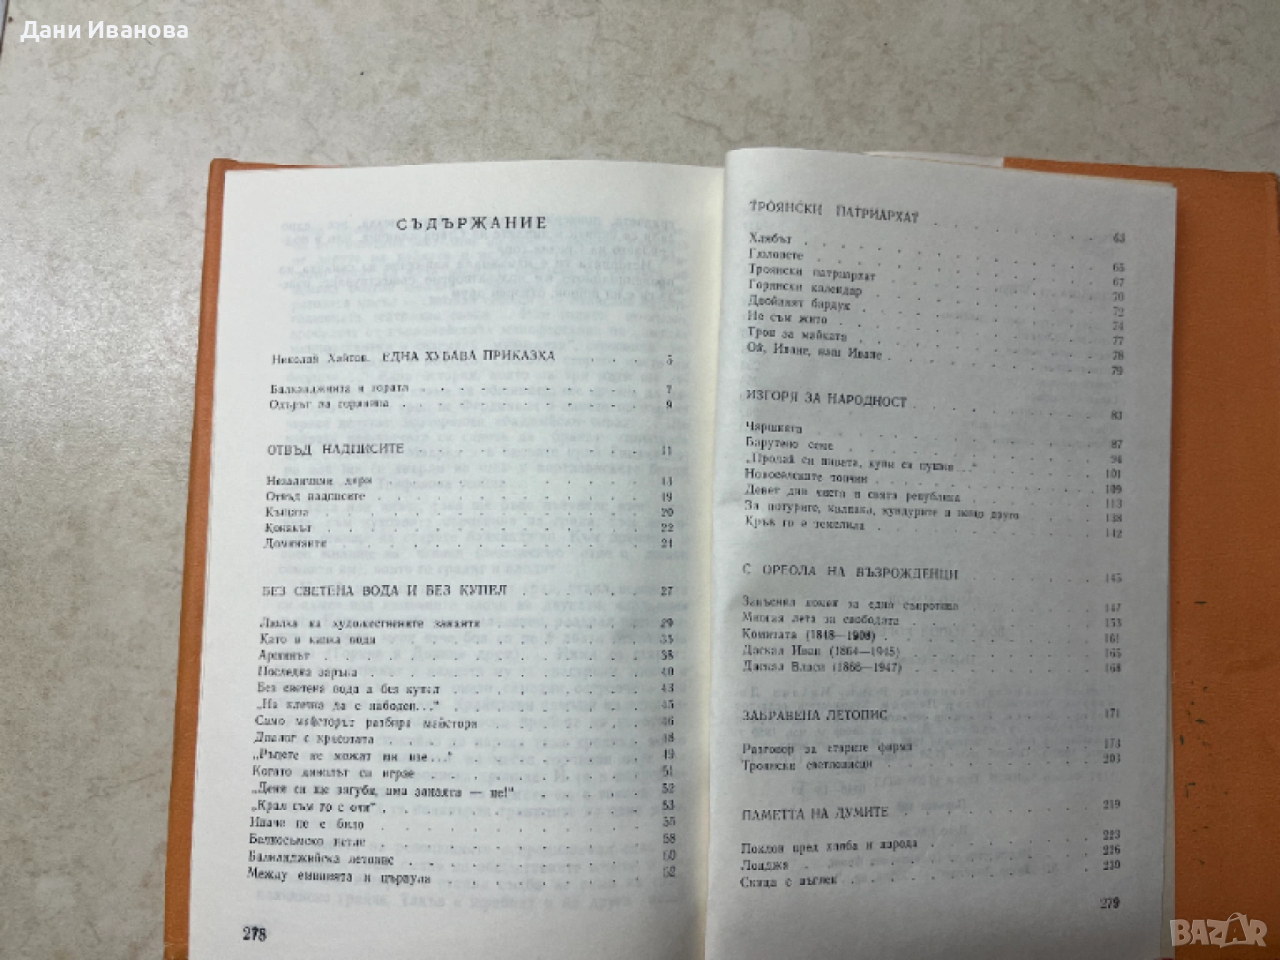 Дани Иванова
СЪДЪРЖАНИЕ
Николай Хайтов. ЕДНА ХУБАВА ПРИКАЗКА 5
Балкаджията и гората 7
Одърът на горянина 9
ОТВЪД НАДПИСИТЕ 11
Незаличими дири
Отвъд надписите 19
Къщата 20
Конакът 22
Доминанти
БЕЗ СВЕТЕНА ВОДА И БЕЗ КУПЕЛ 27
Люлка на художествените занаяти 29
Като в капка вода 35
Аршинът 38
Последна заръка 40
Без светена вода и без купел 43
„На клечка да е набоден..." 45
Само майсторът разбира майстора 46
Диалог с красотата 48
„Ръцете не можат ми взе..." 49
Когато дяволът си играе 51
„Деня си ще загуби, ама занаята — не!" 52
„Крал съм го с очи" 53
Иначе не е било 55
58
Балкаджийска летопис 60
Между и цървула 62
278
ТРОЯНСКИ ПАТРИАРХАТ 63
Хлябът 65
67
Троянски патриархат 70
Горянски календар 72
Двойният бардук 74
Не съм жито 77
Трон за майката 78
Ой, Иване, наш Иване 79
ИЗГОРЯ ЗА НАРОДНОСТ 83
Чаршията 87
Барутено семе 94
„Продай си нивата, купи си пушка..." 101
Новоселските топчии 109
Девет дни чиста и свята република 113
За потурите, калпака, кундурите и нещо друго 138
Кръв го е темелила 142
С ОРЕОЛА НА ВЪЗРОЖДЕНЦИ 145
Закъснял помен за една съпротива 147
Мигная лета за свободата 153
Комитата (1848—1908) 161
Даскал Иван (1864—1945) 165
Даскал Власи (1866—1947) 168
ЗАБРАВЕНА ЛЕТОПИС 171
Разговор за старите фирми 173
Троянски светлописци 203
ПАМЕТТА НА ДУМИТЕ 219
Поклон пред хляба и народа 223
Лонджа 226
Скица с въглен 230
279
BAZAR